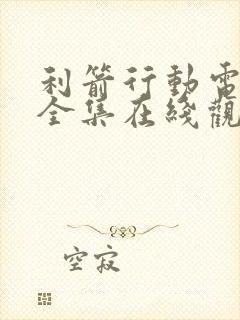 利箭行動電
全集在綫觀
空寂